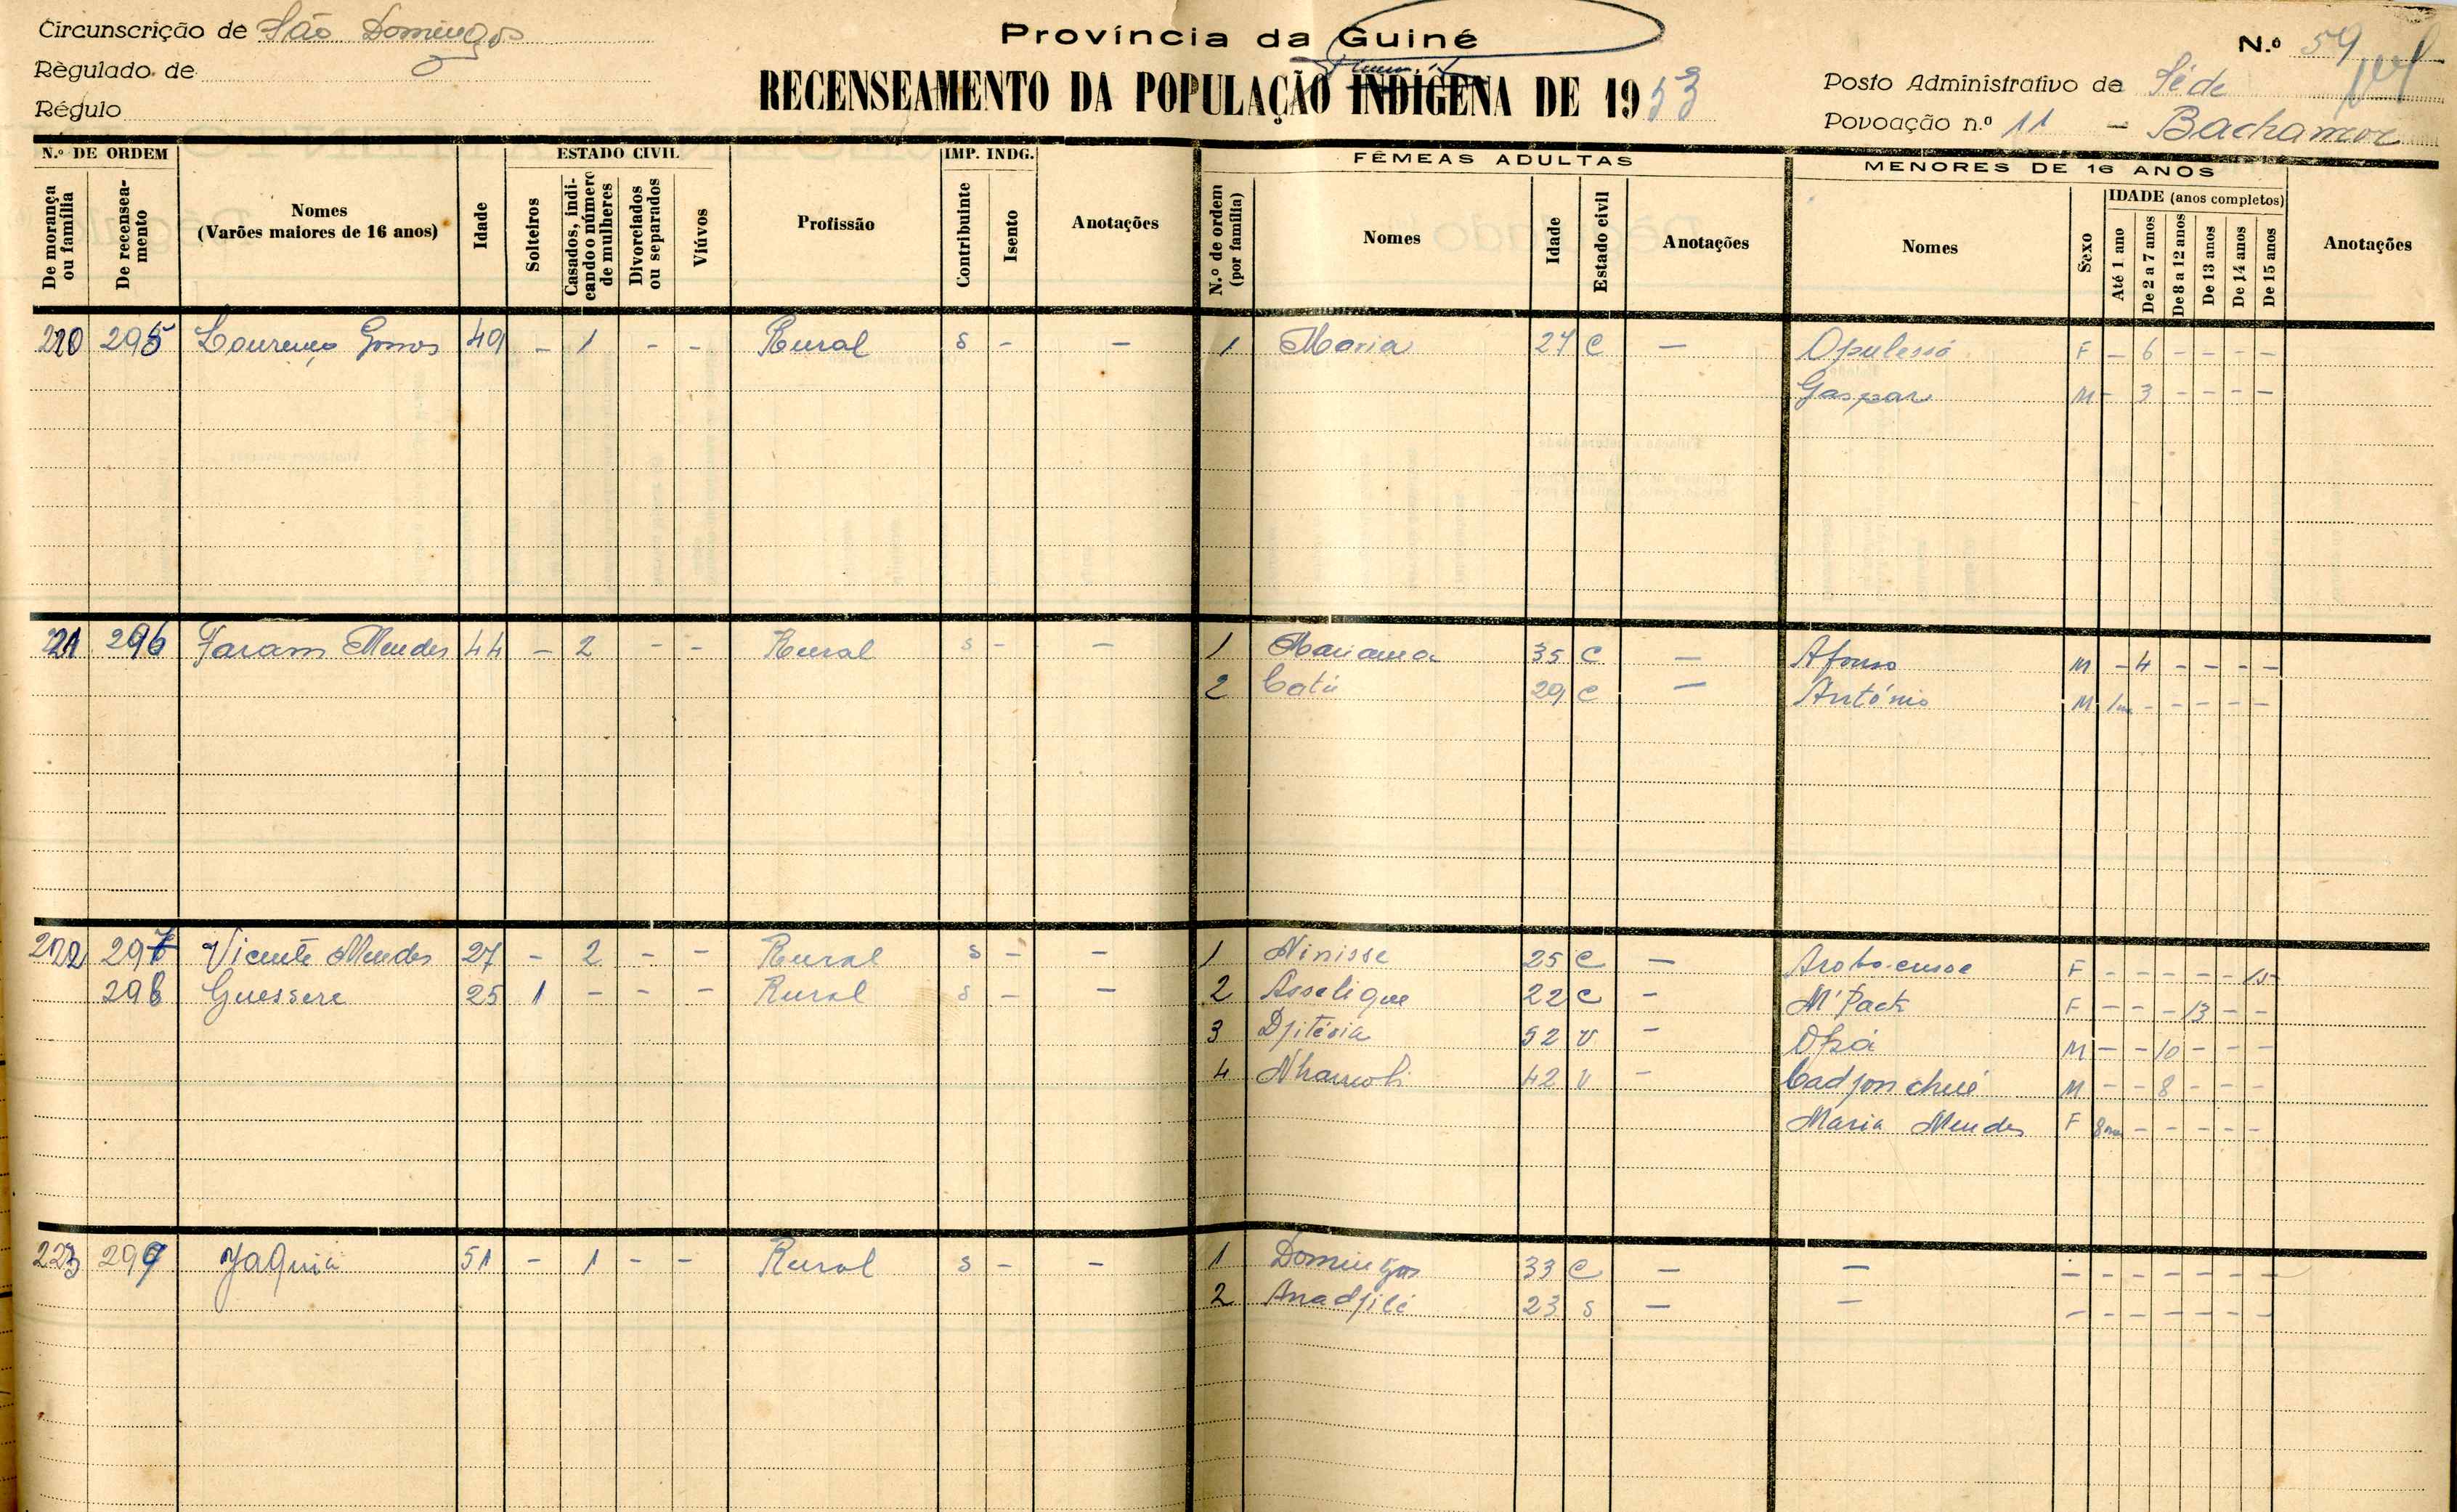 Circunscrição de São Domingos
Règulado de
Régulo
Província da Guiné
RECENSEAMENTO DA POPULAÇÃO INDÍGENA DE 1953
N.º 59
Posto Administrativo de Séde
Povoação n.º 11 -
N.º DE ORDEM
De morança ou família
De recenseamento
Nomes
(Varões maiores de 16 anos)
Idade
ESTADO CIVIL
Solteiros
Casados, indicando o número de mulheres
Divorciados ou separados
Viúvos
Profissão
IMP. INDG.
Contribuinte
Isento
Anotações
FÊMEAS ADULTAS
N.º de ordem (por família)
Nomes
Idade
Estado civil
Anotações
MENORES DE 16 ANOS
Nomes
Sexo
IDADE (anos completos)
Até 1 ano
De 2 a 7 anos
De 8 a 12 anos
De 13 anos
De 14 anos
De 15 anos
Anotações
220 295 Lourenço Gomes 49 - 1 - - Rural S - - 1 Maria 27 C - Opulessó F - 6 - - - -
Gaspar M - 3 - - - -
221 296 Faram Mendes 44 - 2 - - Rural S - - 1 Mariama 35 C - Afonso M - 4 - - - -
2 Catú 29 C - António M 1m - - - - -
222 297 Vicente Mendes 27 - 2 - - Rural S - - 1 Ninisse 25 C - F - - - - - 15
298 Guessere 25 1 - - - Rural S - - 2 Asselique 22 C - M'Pack F - - - 13 - -
3 Djitéria 52 V - Opá M - - 10 - - -
4 42 V - Cadjonchué M - - 8 - - -
Maria Mendes F 8m - - - - -
223 299 Jaquia 51 - 1 - - Rural S - - 1 Domingas 33 C - - - - - - - - -
2 Anadjilé 23 S - - - - - - - - -